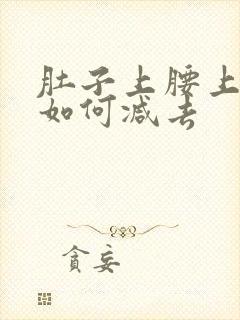 肚子上腰上
如何减去
贪妄